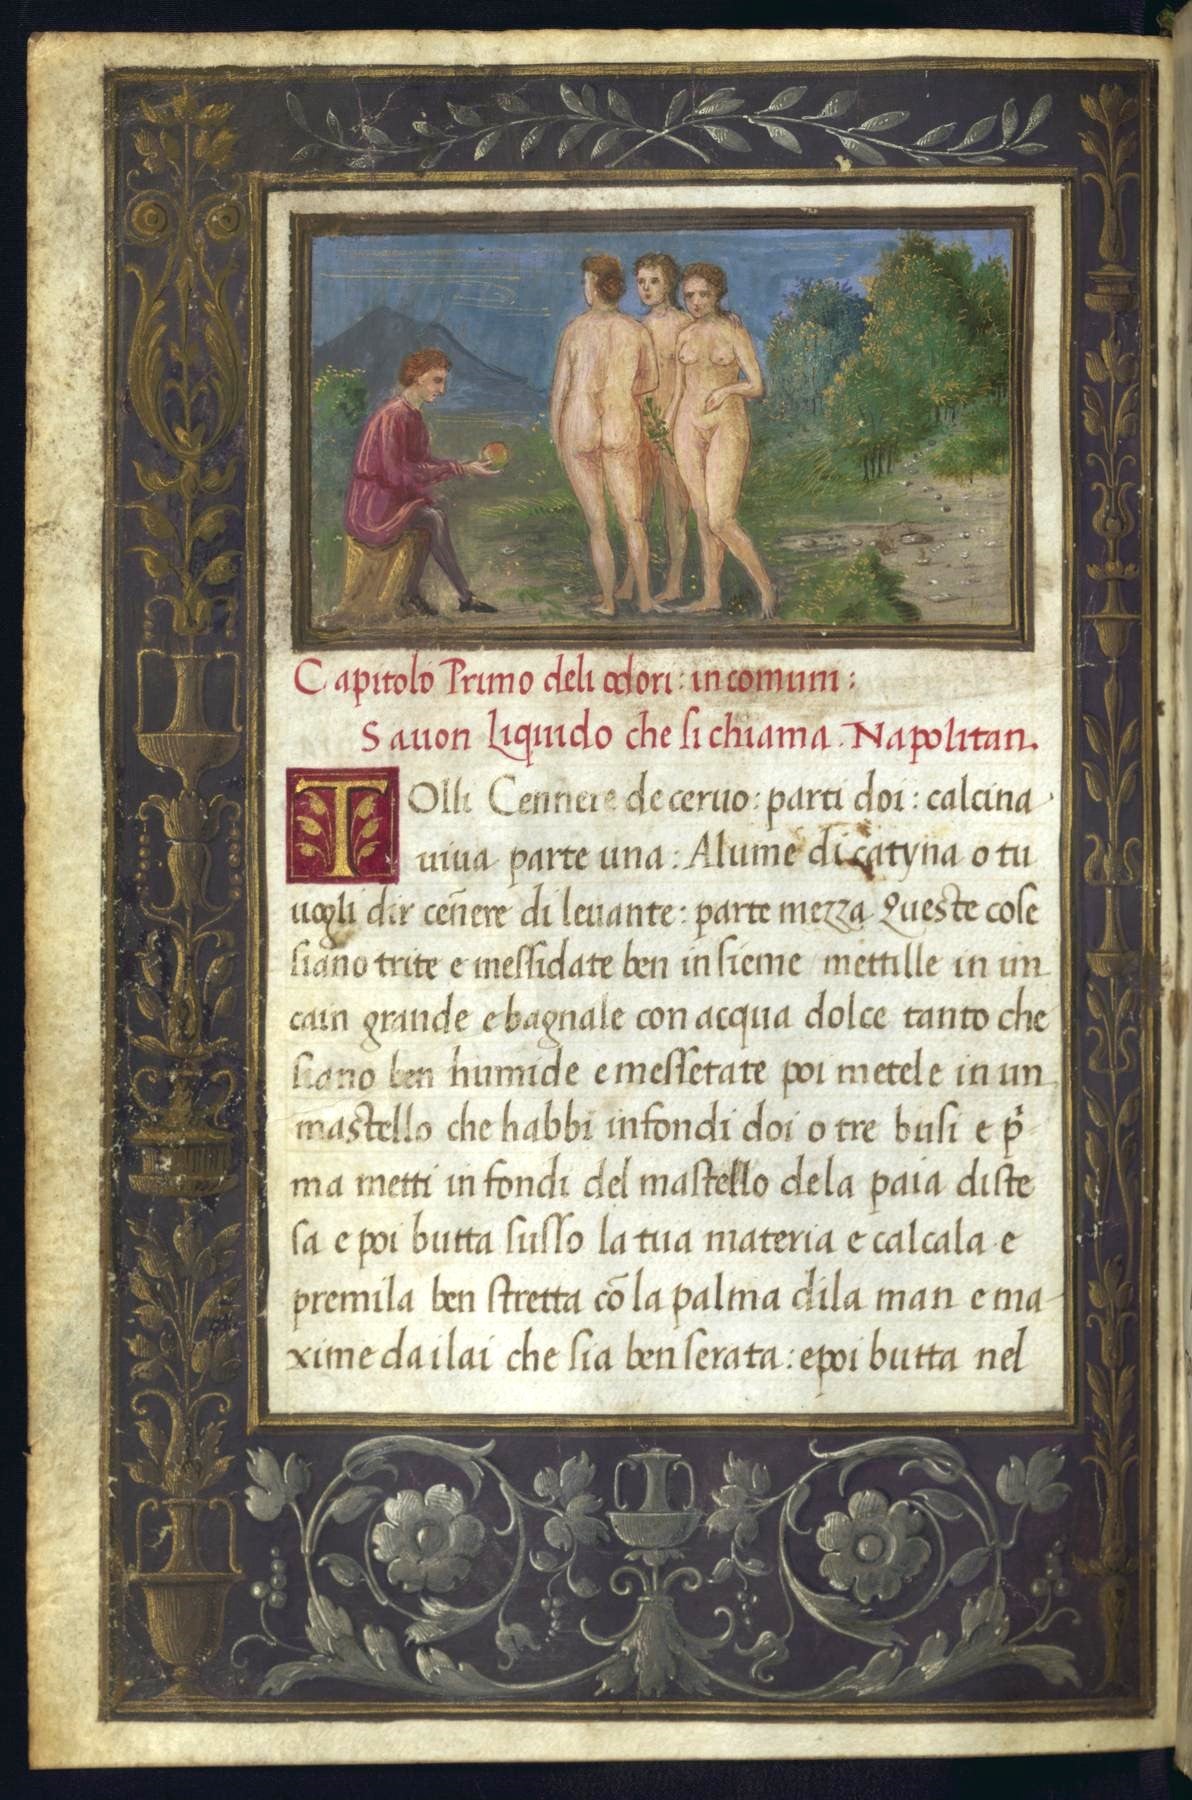 Capitolo Primo deli odori : in comuni :
Sauon liquido che si chiama . Napolitan.
TOlli Cennere de ceruo : parti doi : calcina
uiua parte una : Alume di catyna o tu
uogli dir ceñere di leuante : parte mezza Queste cose
siano trite e messidate ben insieme mettille in un
cain grande e bagnale con acqua dolce tanto che
siano ben humide e messetate poi metele in un
mastello che habbi in fondi doi o tre busi e p̄
ma metti in fondi del mastello dela paia diste
sa e poi butta susso la tua materia e calcala e
premila ben stretta cō la palma dila man e ma
xime dai lai che sia ben serata : e poi butta nel